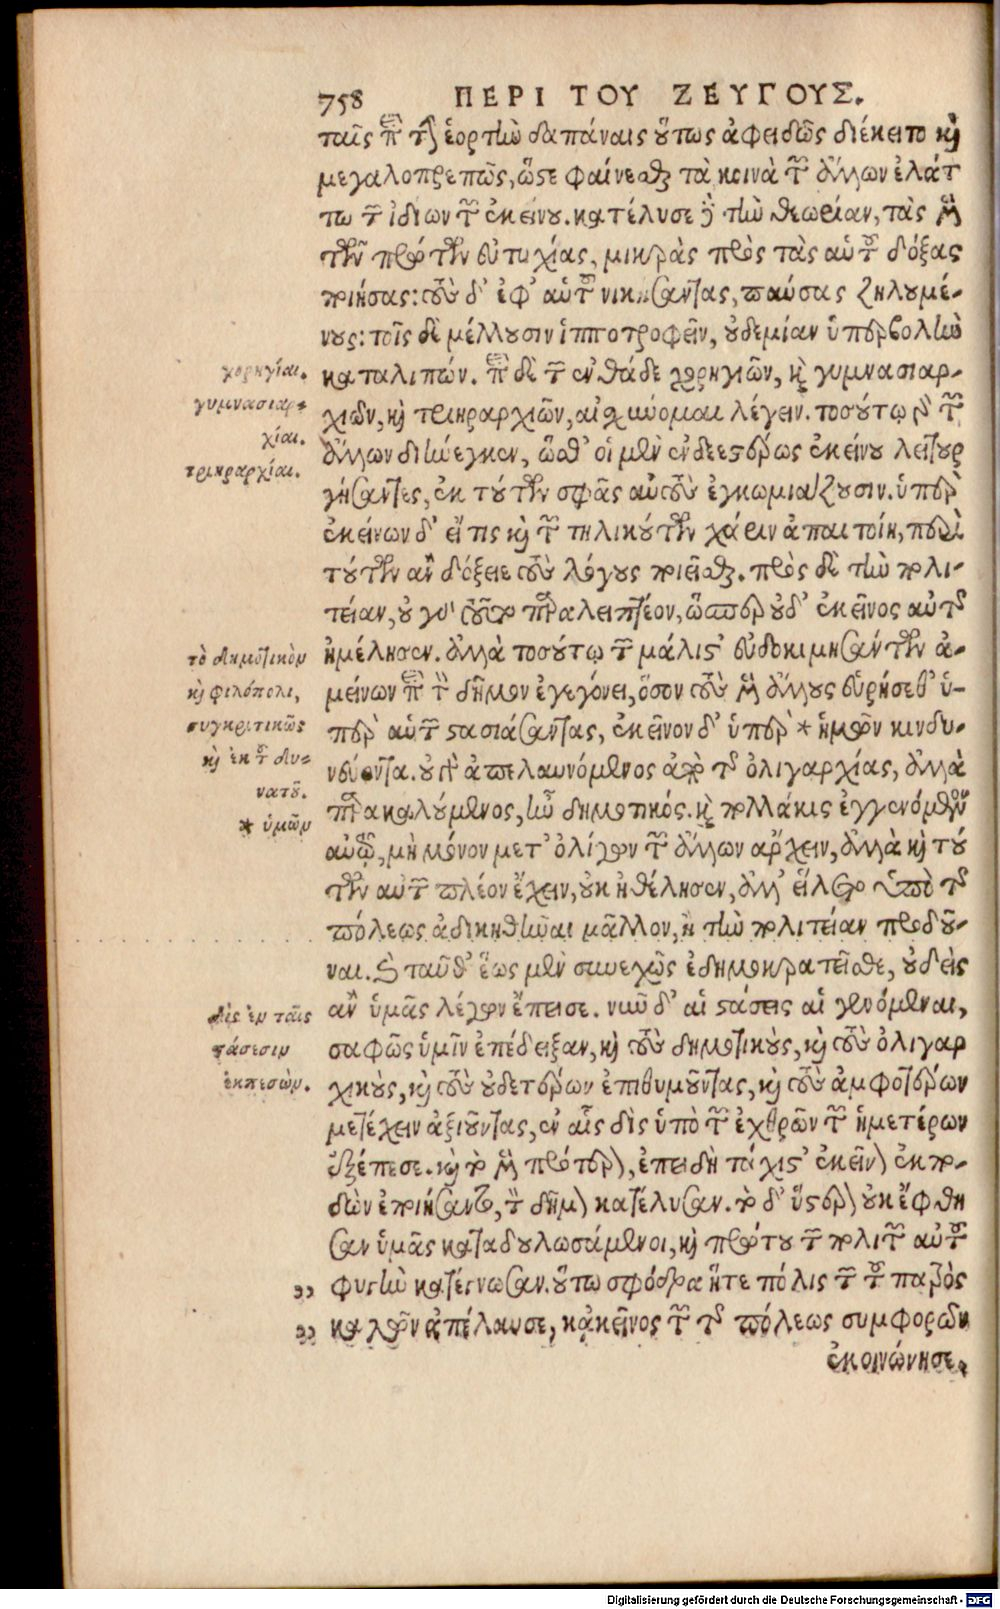 758 ΠΕΡΙ ΤΟΥ ΖΕΥΓΟΥΣ.
ταῖς περὶ τὴν ἑορτὴν δαπάναις οὕτως ἀφειδῶς διέκειτο καὶ
μεγαλοπρεπῶς, ὥστε φαίνεσθαι τὰ κοινὰ τῶν ἄλλων ἐλάτ
τω τῶν ἰδίων τῶν ἐκείνου. κατέλυσε δὲ τὴν θεωρίαν, τὰς μὲν
τῶν πρότων εὐτυχίας, μικρὰς πρὸς τὰς αὑτοῦ δόξας
ποιήσας: τοὺς δ' ἐφ' αὑτοῦ νικήσαντας, παύσας ζηλουμέ-
νους: τοῖς δὲ μέλλουσιν ἱπποτροφεῖν, οὐδεμίαν ὑπερβολὴν
χορηγίαι.
καταλιπών. περὶ δὲ τῶν ἐνθάδε χορηγιῶν, καὶ γυμνασιαρ-
γυμνασιαρ-
χιῶν, καὶ τριηραρχιῶν, αἰσχύνομαι λέγειν. τοσούτῳ γὰρ τῶν
χίαι.
ἄλλων διήνεγκεν, ὥσθ' οἱ μὲν ἐνδεεστέρως ἐκείνου λειτουρ
τριηραρχίαι.
γήσαντες, ἐκ τούτων σφᾶς αὐτοὺς ἐγκωμιάζουσιν. ὑπὲρ
ἐκείνων δ' εἴ τις καὶ τῶν τηλικούτων χάριν ἀπαιτοίη, περὶ
τούτων ἂν δόξειε τοὺς λόγους ποιεῖσθαι. πρὸς δὲ τὴν πολι-
τείαν, οὐ γὰρ τοῦτο παραλειπτέον, ὥσπερ οὐδ' ἐκεῖνος αὐτῆς
τὸ δημοτικὸν
ἠμέλησεν. ἀλλὰ τοσούτῳ τῶν μάλιστ' εὐδοκιμησάντων ἀ-
καὶ φιλόπολι,
μείνων περὶ τὸν δῆμον ἐγεγόνει, ὅσον τοὺς μὲν ἄλλους εὑρήσεθ' ὑ-
συγκριτικῶς
πὲρ αὑτῶν στασιάσαντας, ἐκεῖνον δ' ὑπὲρ * ἡμῶν κινδυ-
καὶ ἐκ τοῦ δυ-
νεύοντα. οὐ γὰρ ἀπελαυνόμενος ἀπὸ τῆς ὀλιγαρχίας, ἀλλὰ
νατοῦ.
παρακαλούμενος, ἦν δημοτικός. καὶ πολλάκις ἐγγενόμενον
* ὑμῶν
αὐτῷ, μὴ μόνον μετ' ὀλίγων τῶν ἄλλων ἄρχειν, ἀλλὰ καὶ τού
των αὐτῶν πλέον ἔχειν, οὐκ ἠθέλησεν, ἀλλ' εἵλετο ὑπὸ τῆς
πόλεως ἀδικηθῆναι μᾶλλον, ἢ τὴν πολιτείαν προδοῦ-
ναι. καὶ ταῦθ' ἕως μὲν συνεχῶς ἐδημοκρατεῖσθε, οὐδεὶς
δὶς ἐν ταῖς
ἂν ὑμᾶς λέγων ἔπεισε. νῦν δ' αἱ στάσεις αἱ γενόμεναι,
στάσεσιν
σαφῶς ὑμῖν ἐπέδειξαν, καὶ τοὺς δημοτικοὺς, καὶ τοὺς ὀλιγαρ
ἐκπεσών.
χικοὺς, καὶ τοὺς οὐδετέρων ἐπιθυμοῦντας, καὶ τοὺς ἀμφοτέρων
μετέχειν ἀξιοῦντας, ἐν αἷς δὶς ὑπὸ τῶν ἐχθρῶν τῶν ἡμετέρων
ἐξέπεσε. καὶ τὸ μὲν πρότερον, ἐπειδὴ τάχιστ' ἐκεῖνον ἐκπο-
δὼν ἐποιήσαντο, τὸν δῆμον κατέλυσαν. τὸ δ' ὕστερον οὐκ ἔφθη
σαν ὑμᾶς καταδουλωσάμενοι, καὶ πρώτου τῶν πολιτῶν αὐτοῦ
φυγὴν κατέγνωσαν. οὕτω σφόδρα ἥτε πόλις τῶν τοῦ πατρὸς
κακῶν ἀπέλαυσε, κἀκεῖνος τῶν τῆς πόλεως συμφορῶν
ἐκοινώνησε.